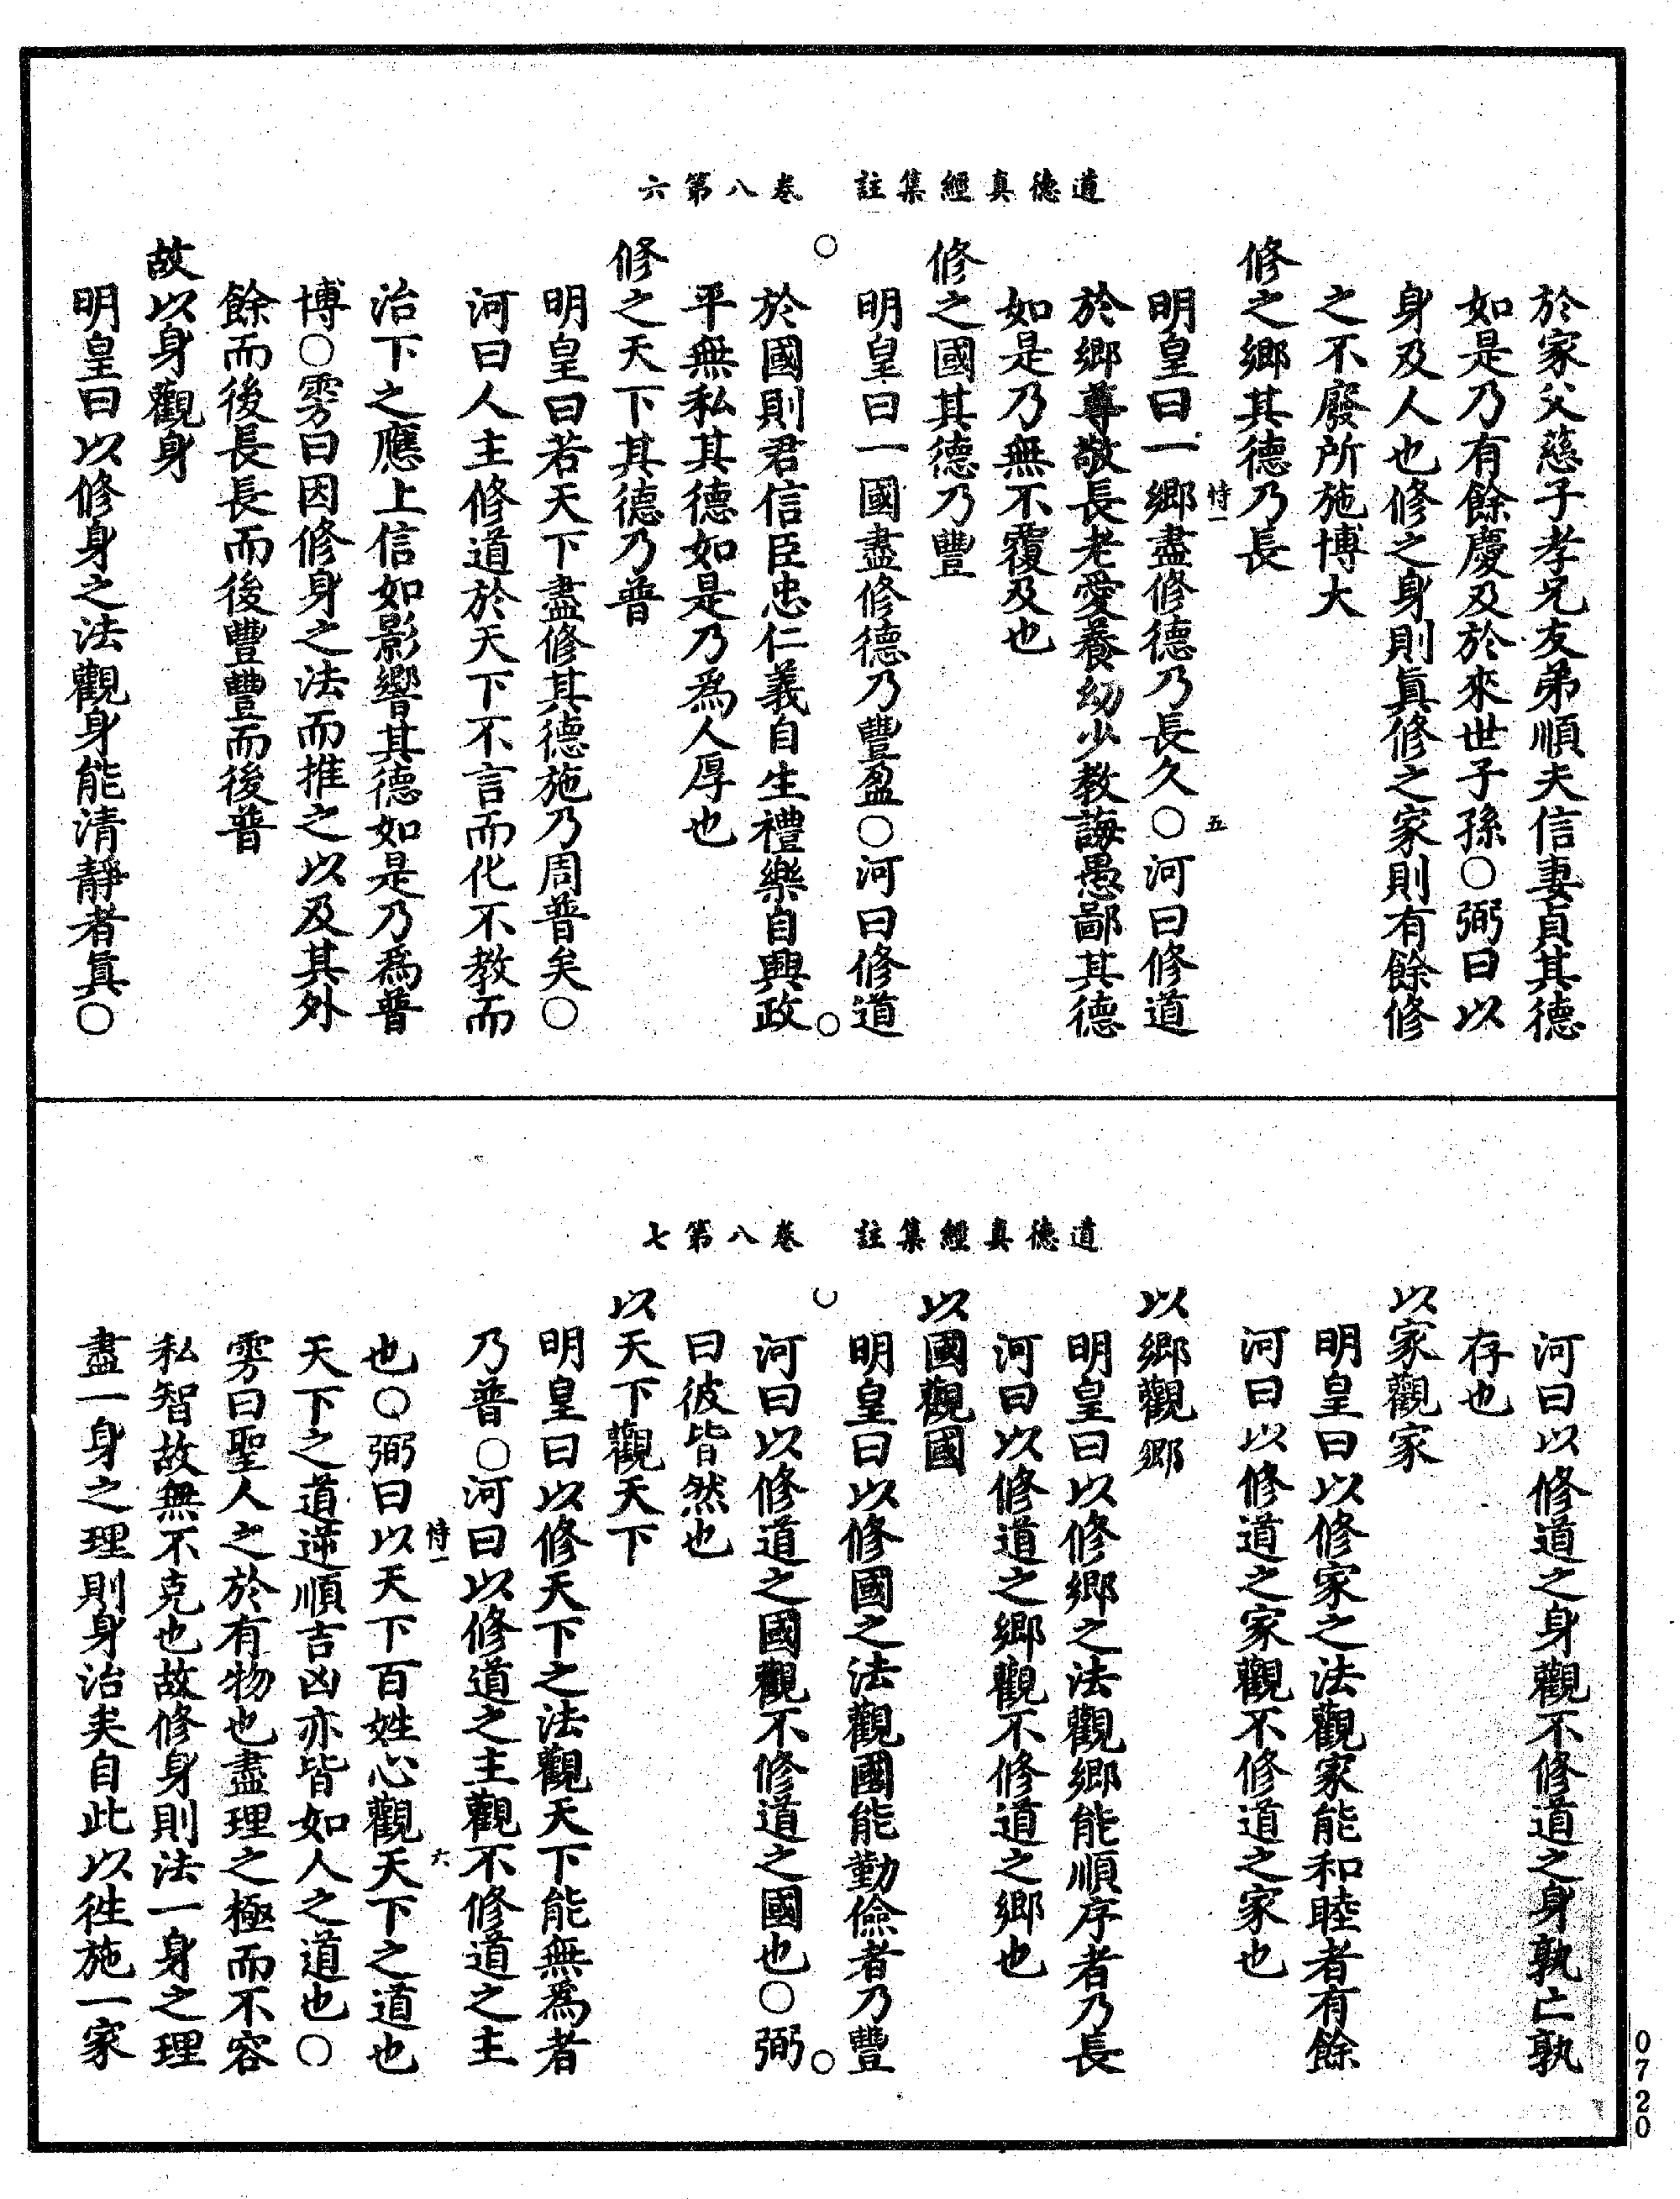 道德真經集註　卷八第六
於家父慈子孝兄友弟順夫信妻貞其德
如是乃有餘慶及於來世子孫○弼曰以
身及人也修之身則眞修之家則有餘修
之不廢所施博大
修之鄉其德乃長
恃一　五
明皇曰一鄉盡修德乃長久○河曰修道
於鄉尊敬長老愛養幼少教誨愚鄙其德
如是乃無不覆及也
修之國其德乃豐
明皇曰一國盡修德乃豐盈○河曰修道
於國則君信臣忠仁義自生禮樂自興政
平無私其德如是乃爲人厚也
修之天下其德乃普
明皇曰若天下盡修其德施乃周普矣○
河曰人主修道於天下不言而化不教而
治下之應上信如影響其德如是乃爲普
博○雱曰因修身之法而推之以及其外
餘而後長長而後豐豐而後普
故以身觀身
明皇曰以修身之法觀身能清靜者眞○
道德真經集註　卷八第七
河曰以修道之身觀不修道之身孰亡孰
存也
以家觀家
明皇曰以修家之法觀家能和睦者有餘
河曰以修道之家觀不修道之家也
以鄉觀鄉
明皇曰以修鄉之法觀鄉能順序者乃長
河曰以修道之鄉觀不修道之鄉也
以國觀國
明皇曰以修國之法觀國能勤儉者乃豐
河曰以修道之國觀不修道之國也○弼
曰彼皆然也
以天下觀天下
明皇曰以修天下之法觀天下能無爲者
乃普○河曰以修道之主觀不修道之主
恃一　六
也○弼曰以天下百姓心觀天下之道也
天下之道逆順吉凶亦皆如人之道也○
雱曰聖人之於有物也盡理之極而不容
私智故無不克也故修身則法一身之理
盡一身之理則身治矣自此以徃施一家
0720